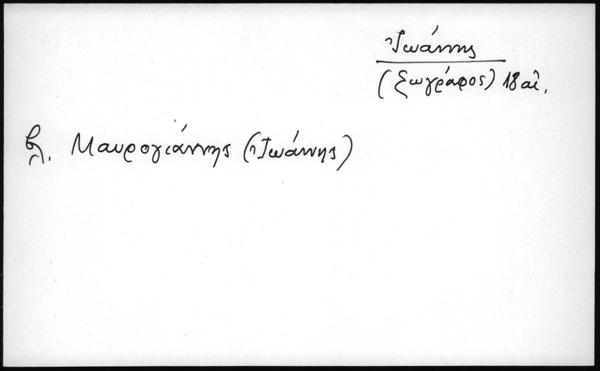 Ἰωάννης
(ζωγράφος) 18 αἰ.
βλ. Μαυρογιάννης (Ἰωάννης)